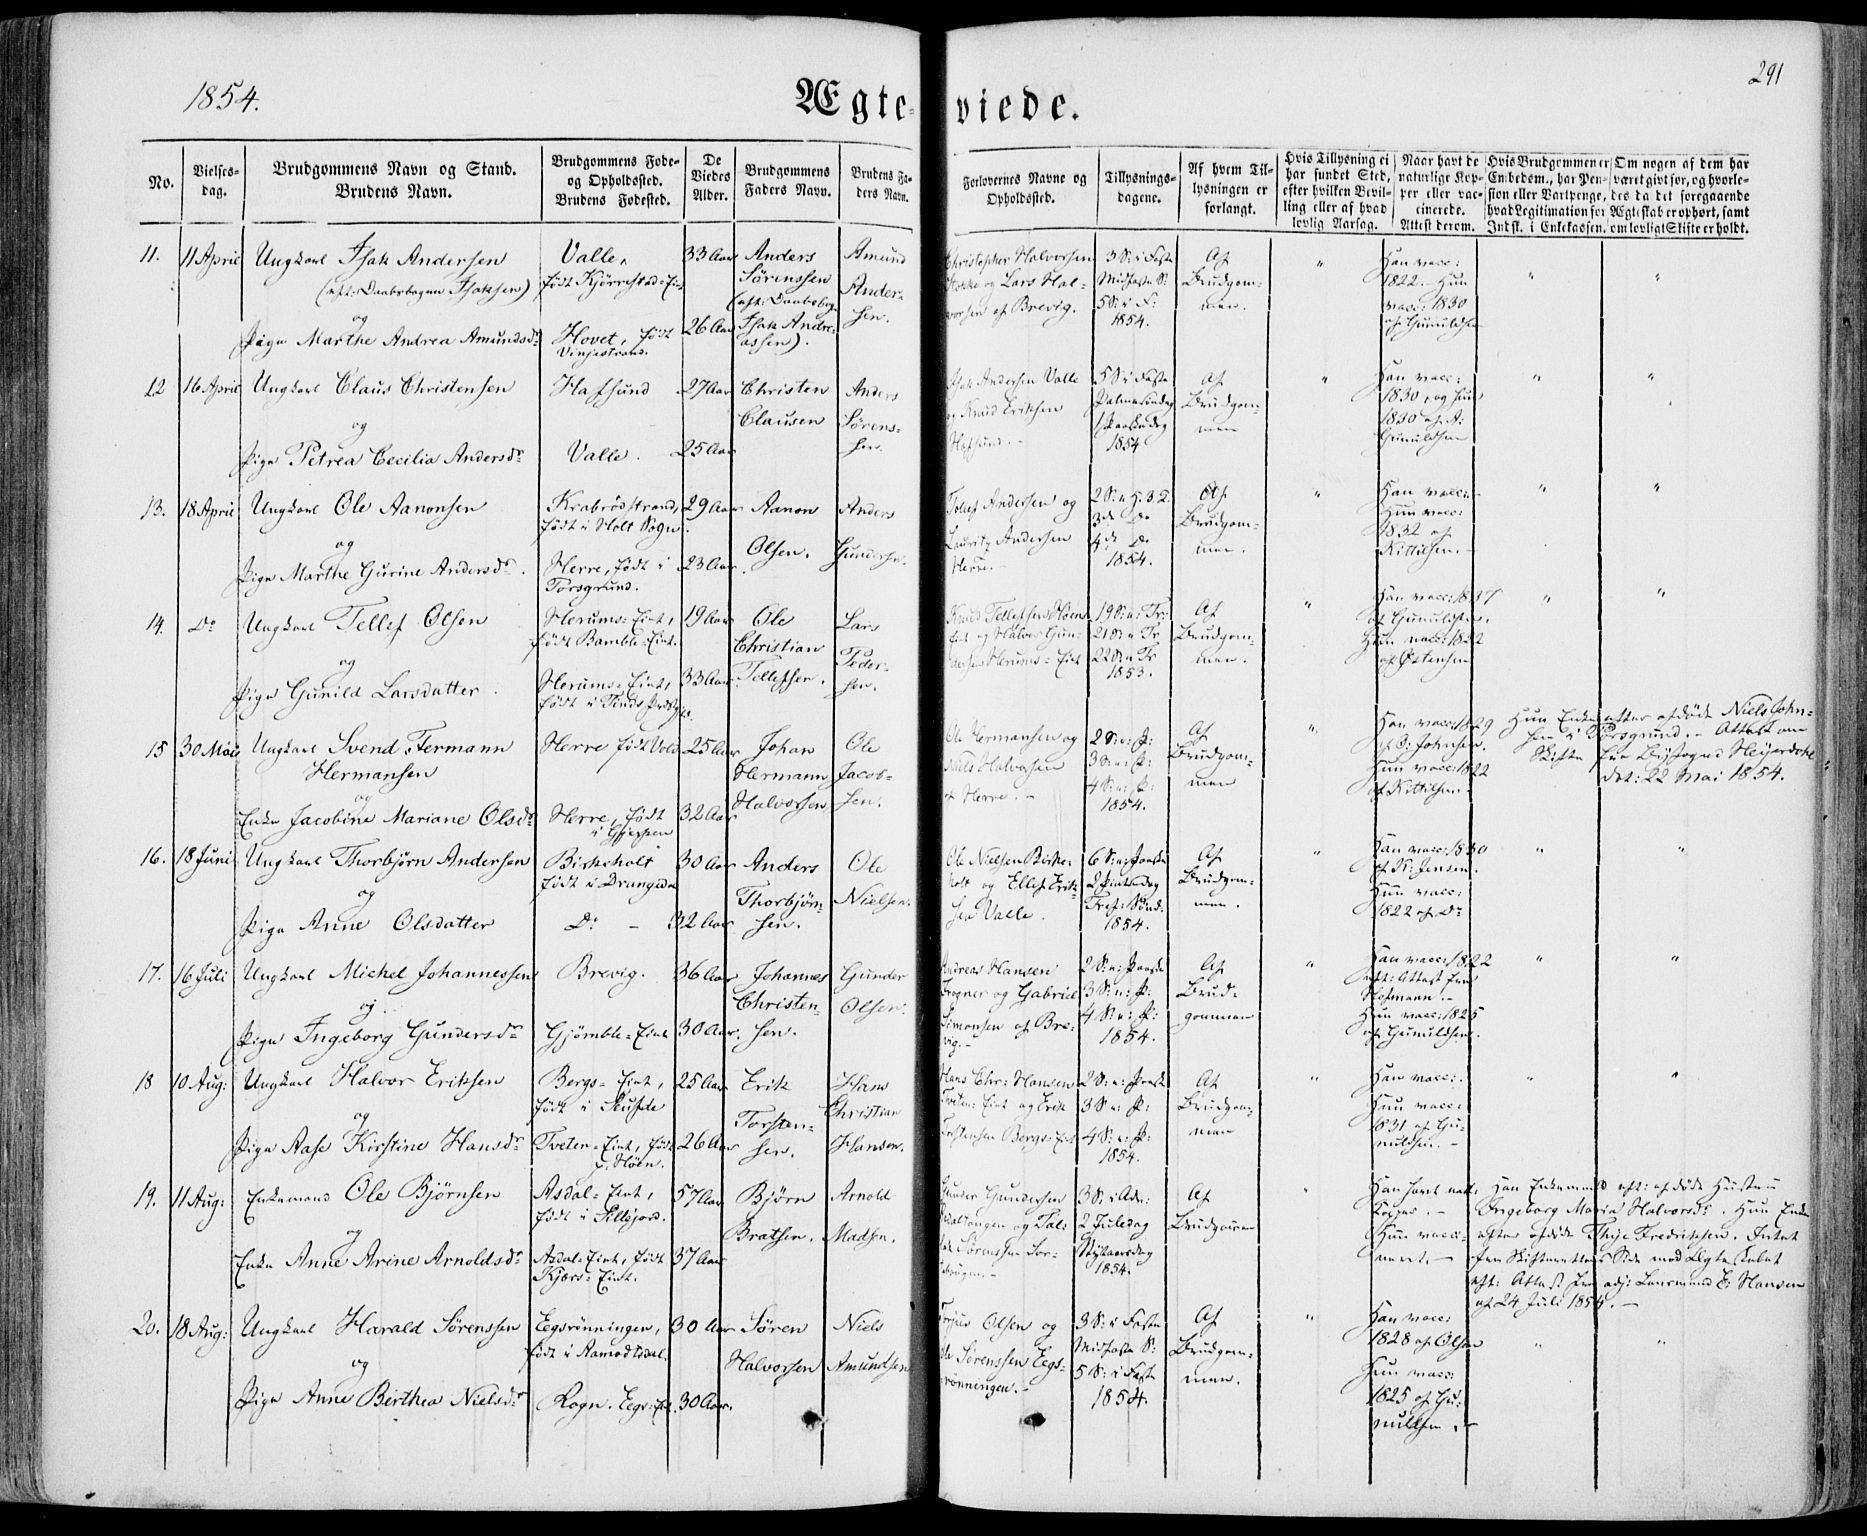 1854.
Ægte-
viede.
291
No.
Vielses-
dag.
Brudgommens Navn og Stand.
Brudens Navn.
Brudgommens Føde-
og Opholdssted.
Brudens Fødested.
De
Viedes
Alder.
Brudgommens
Faders Navn.
Brudens Fa-
ders Navn.
Forlovernes Navne og
Opholdssted.
Tillysnings-
dagene.
Af hvem Til-
lysningen er
forlangt.
Hvis Tillysning ei
har fundet Sted,
efter hvilken Bevil-
ling eller af hvad
lovlig Aarsag.
Naar havt de
naturlige Kop-
per eller vac-
cinerede.
Attest derom.
Hvis Brudgommen er
Embedsm., har Pen-
sion eller Vartpenge,
hvad Legitimation for
Indsk. i Enkekassen.
Om nogen af dem har
været givt før, og hvorle-
des da det foregaaende
Ægteskab er ophørt, samt
om lovligt Skifte er holdt.
11.
11 April
Ungkarl Isak Andersen
(eft: Daabsbogen Isaksen)
og
Pige Marthe Andrea Amundsdr
Valle,
født Kjørrestad=Eie
Hovet, født
Vinjestrand.
33 Aar
26 Aar
Anders
Sørenssen
(eft: Daabsbog
Isak Andre-
assen).
Amund
Ander-
sen.
Christopher Halvorsen
og Lars Hal-
vorsen af Brevig.
3 S: i Faste
Midfaste S:
5 S: i F:
1854.
Af
Brudgom-
men.
"
Han vacc:
1822. Hun
vacc: 1830
af Gunuldsen
"
"
12
16 April
Ungkarl Claus Christensen
og
Pige Petrea Cecilia Andersdr
Hafsund
Valle.
27 Aar
25 Aar
Christen
Clausen
Anders
Sørens-
sen.
Isak Andersen Valle
og Knud Eriksen
Hafsund. -
5 S: i Faste
Palmesøndag
1 Paaskedag
1854
Af
Brudgom-
men
"
Han vacc:
1830, og Hun
1830 af A:
Gunuldsen
"
"
13.
18 April
Ungkarl Ole Aanonsen
og
Pige Marthe Gurine Andersdr.
Krabrødstrand,
født i Holt Sogn.
Herre, født i
Porsgrund.
29 Aar
23 Aar
Aanon
Olsen.
Anders
Gundersen.
Tollef Andersen og
Lauritz Andersen
Herre. -
2 S: e: H. 3. K.
3de Do
4de Do
1854.
Af
Brudgom-
men.
"
Han vacc:
Hun vacc:
1832 af
Kittilsen. -
"
"
14.
Do
Ungkarl Tellef Olsen
og
Pige Gunild Larsdatter.
Herums=Eiet,
født Bamble=Eiet.
Herums=Eiet,
født i Tinds Præstgj.
19 Aar
33 Aar
Ole
Christian
Tellefsen.
Lars
Peder-
sen.
Knud Tellefsen Høen
Eiet og Halvor Gun-
dersen Herums=Eiet
19 S: e: Tr:
21 S: e: Tr
22 S: e: Tr
1853.
Af
Brudgom-
men.
"
Han vacc: 1837
af Gunuldsen.
Hun vacc: 1822
af Østensen
"
"
15
30 Mai
Ungkarl Svend Fermann
Hermansen
og
Enke Jacobine Mariane Olsdr
Herre født Vold
Herre, født
i Gjerpen
25 Aar
32 Aar
Johan
Hermann
Halvorsen
Ole
Jacob-
sen.
Ole Hermansen og
Niels Halvorsen
af Herre. -
2 S: e: P:
3 S: e: P:
4 S: e: P:
1854.
Af
Brudgom-
men
"
Han vacc: 1829
af O: Johnsen.
Hun vacc: 1822
af Kittilsen -
Hun Enke efter afdøde Niels John-
sen i Porsgrund. - Attest om
Skifte fra Byfoged Heyerdahl
dat: 22 Mai 1854.
16.
18 Juni
Ungkarl Thorbjørn Andersen
og
Pige Anne Olsdatter
Birkeholt
født i Drangedal
Do -
30 Aar
32 Aar
Anders
Thorbjørn-
sen.
Ole
Nielsen.
Ole Nielsen Birke-
holt og Ellef Erik-
sen Valle.
6 S: e: Paaske
2 Pintsedag
Tref: Sønd:
1854.
Af
Brudgom-
men.
"
Han vacc: 1830
af N: Jensen.
Hun vacc:
1822 af Do
"
"
17.
16 Juli
Ungkarl Michel Johannessen
og
Pige Ingeborg Gundersdr
Brevig.
Gjømble=Eiet
36 Aar
30 Aar.
Johannes
Christen-
sen.
Gunder
Olsen.
Andreas Hansen
Trogner og Gabriel
Simonsen af Bre-
vig. -
2 S: e: Paaske
3 S: e: P:
4 S: e: P:
1854.
Af
Brud-
gommen
"
Han vacc: 1822
eft: Attest fra
Homann. -
Hun vacc: 1825
af Gunuldsen.
"
"
18
10 Aug:
Ungkarl Halvor Eriksen
og
Pige Aase Kirstine Hansdr
Bergs=Eiet,
født i Slufsde
Tveten=Eiet, født
p: Høen.
25 Aar
26 Aar
Erik
Torsten-
sen.
Hans
Christian
Hansen.
Hans Chr: Hansen
Tveten=Eiet og Erik
Torstensen Bergs=Eiet
2 S: e: Paask
3 S: e: P:
4 S: e: P:
1854.
Af
Brudgom-
men
"
Han vacc:
Hun vacc:
1831 af Gu-
nuldsen. -
"
"
19.
11 Aug:
Enkemand Ole Bjørnsen
og
Enke Anne Arine Arnoldsdr
Asdal=Eiet,
født i Sillejord.
Asdal=Eiet, født
Kjærs=Eiet.
57 Aar
37 Aar
Bjørn
Bratsen.
Arnold
Madsen.
Gunder Gundersen
Asdalvangen og Tal-
lak Sørenssen
3 S: i Adv:
2 Juledag
Nytaarsdag
1854.
Af
Brudgommen
"
Han havt nat:
Kopper. -
Hun vacci-
neret. -
Han Enkemand eft: afdøde Hustru
Ingeborg Maria Halvorsdr. Hun Enke
efter afdøde Thije Fredriksen. Intet
fra Skifterettens Side mod Ægteskabet
eft: Attest fra adj: Lensmand E: Hansen
af 24 Juli 1854. -
20.
18 Aug:
Ungkarl Harald Sørenssen
og
Pige Anne Berthea Nielsdr
Eegsrønningen,
født i Aamodtdal.
Rogn. Eegs=Eiet
30 Aar
30 Aar.
Søren
Halvorsen
Niels
Amundsen
Terjus Olsen og
Ole Sørenssen Eegs-
rønningen. -
3 S: i Faste
Midfaste S:
5 S: i Faste
1854.
Af
Brudgom-
men.
"
Han vacc:
1828 af Olsen
Hun vacc:
1825 af Gu-
nuldsen. -
"
"